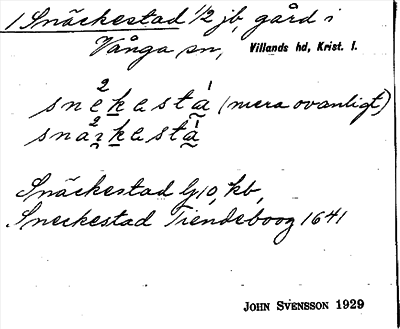 1 Snäckestad 1/2 jb, gård i
Vånga sn, Villands hd, Krist. l.
snekestà (mera ovanligt)
snäkestà
Snäckestad G10, kb,
Sneckestad Tiendeboog 1641
JOHN SVENSSON 1929